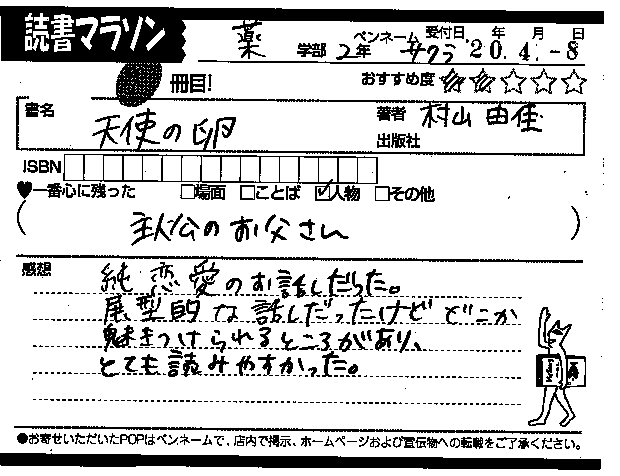 読書マラソン
薬 学部 2年 ペンネーム サクラ 受付日 20.年4.月-8日
冊目!
おすすめ度 ☆☆☆☆☆
書名 天使の卵
著者 村山由佳
出版社
ISBN
♥一番心に残った □場面 □ことば ☑人物 □その他
(主人公のお父さん)
感想
純恋愛のお話しだった。
展型的な話しだったけどどこか
魅きつけられるところがあり、
とても読みやすかった。
●お寄せいただいたPOPはペンネームで、店内で掲示、ホームページおよび宣伝物への転載をご了承ください。